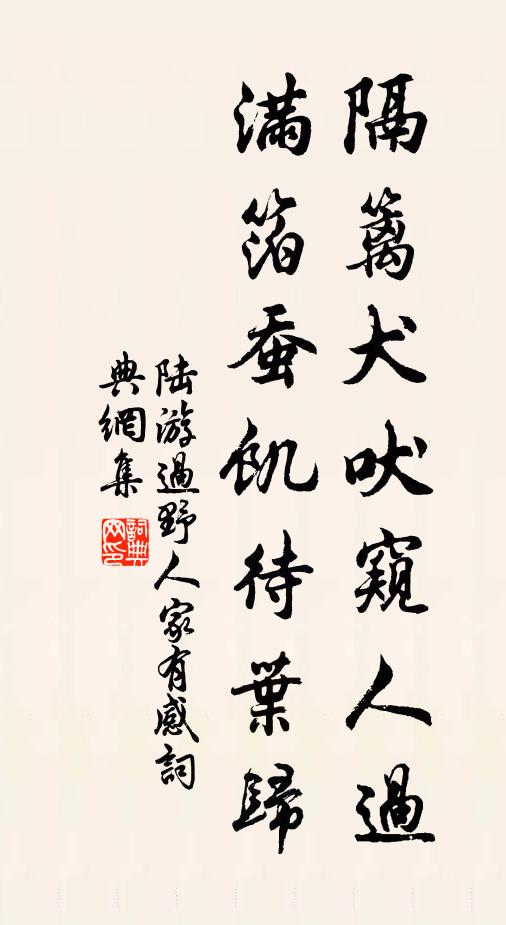 隔籬犬吠窺人過
滿箔蚕飢待葉歸
陆游過野人家有感詞
典網集
詞典網印